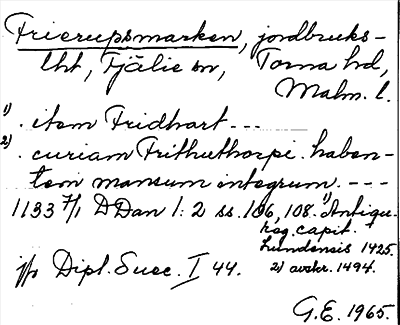 Frierupsmarken, jordbruks-
lht, Fjälie sn, Torna hd,
Malm. l.
1) . item Fridhart ---
2) . curiam Frithuthorpi. haben-
tem mansum integrum. ---
1133 7/1 DDan 1:2 ss. 106, 108. 1) Antiqu.
reg. capit.
Lundensis 1425.
jfr Dipl. Suec. I 44. 2) avskr. 1494.
G.E. 1965.